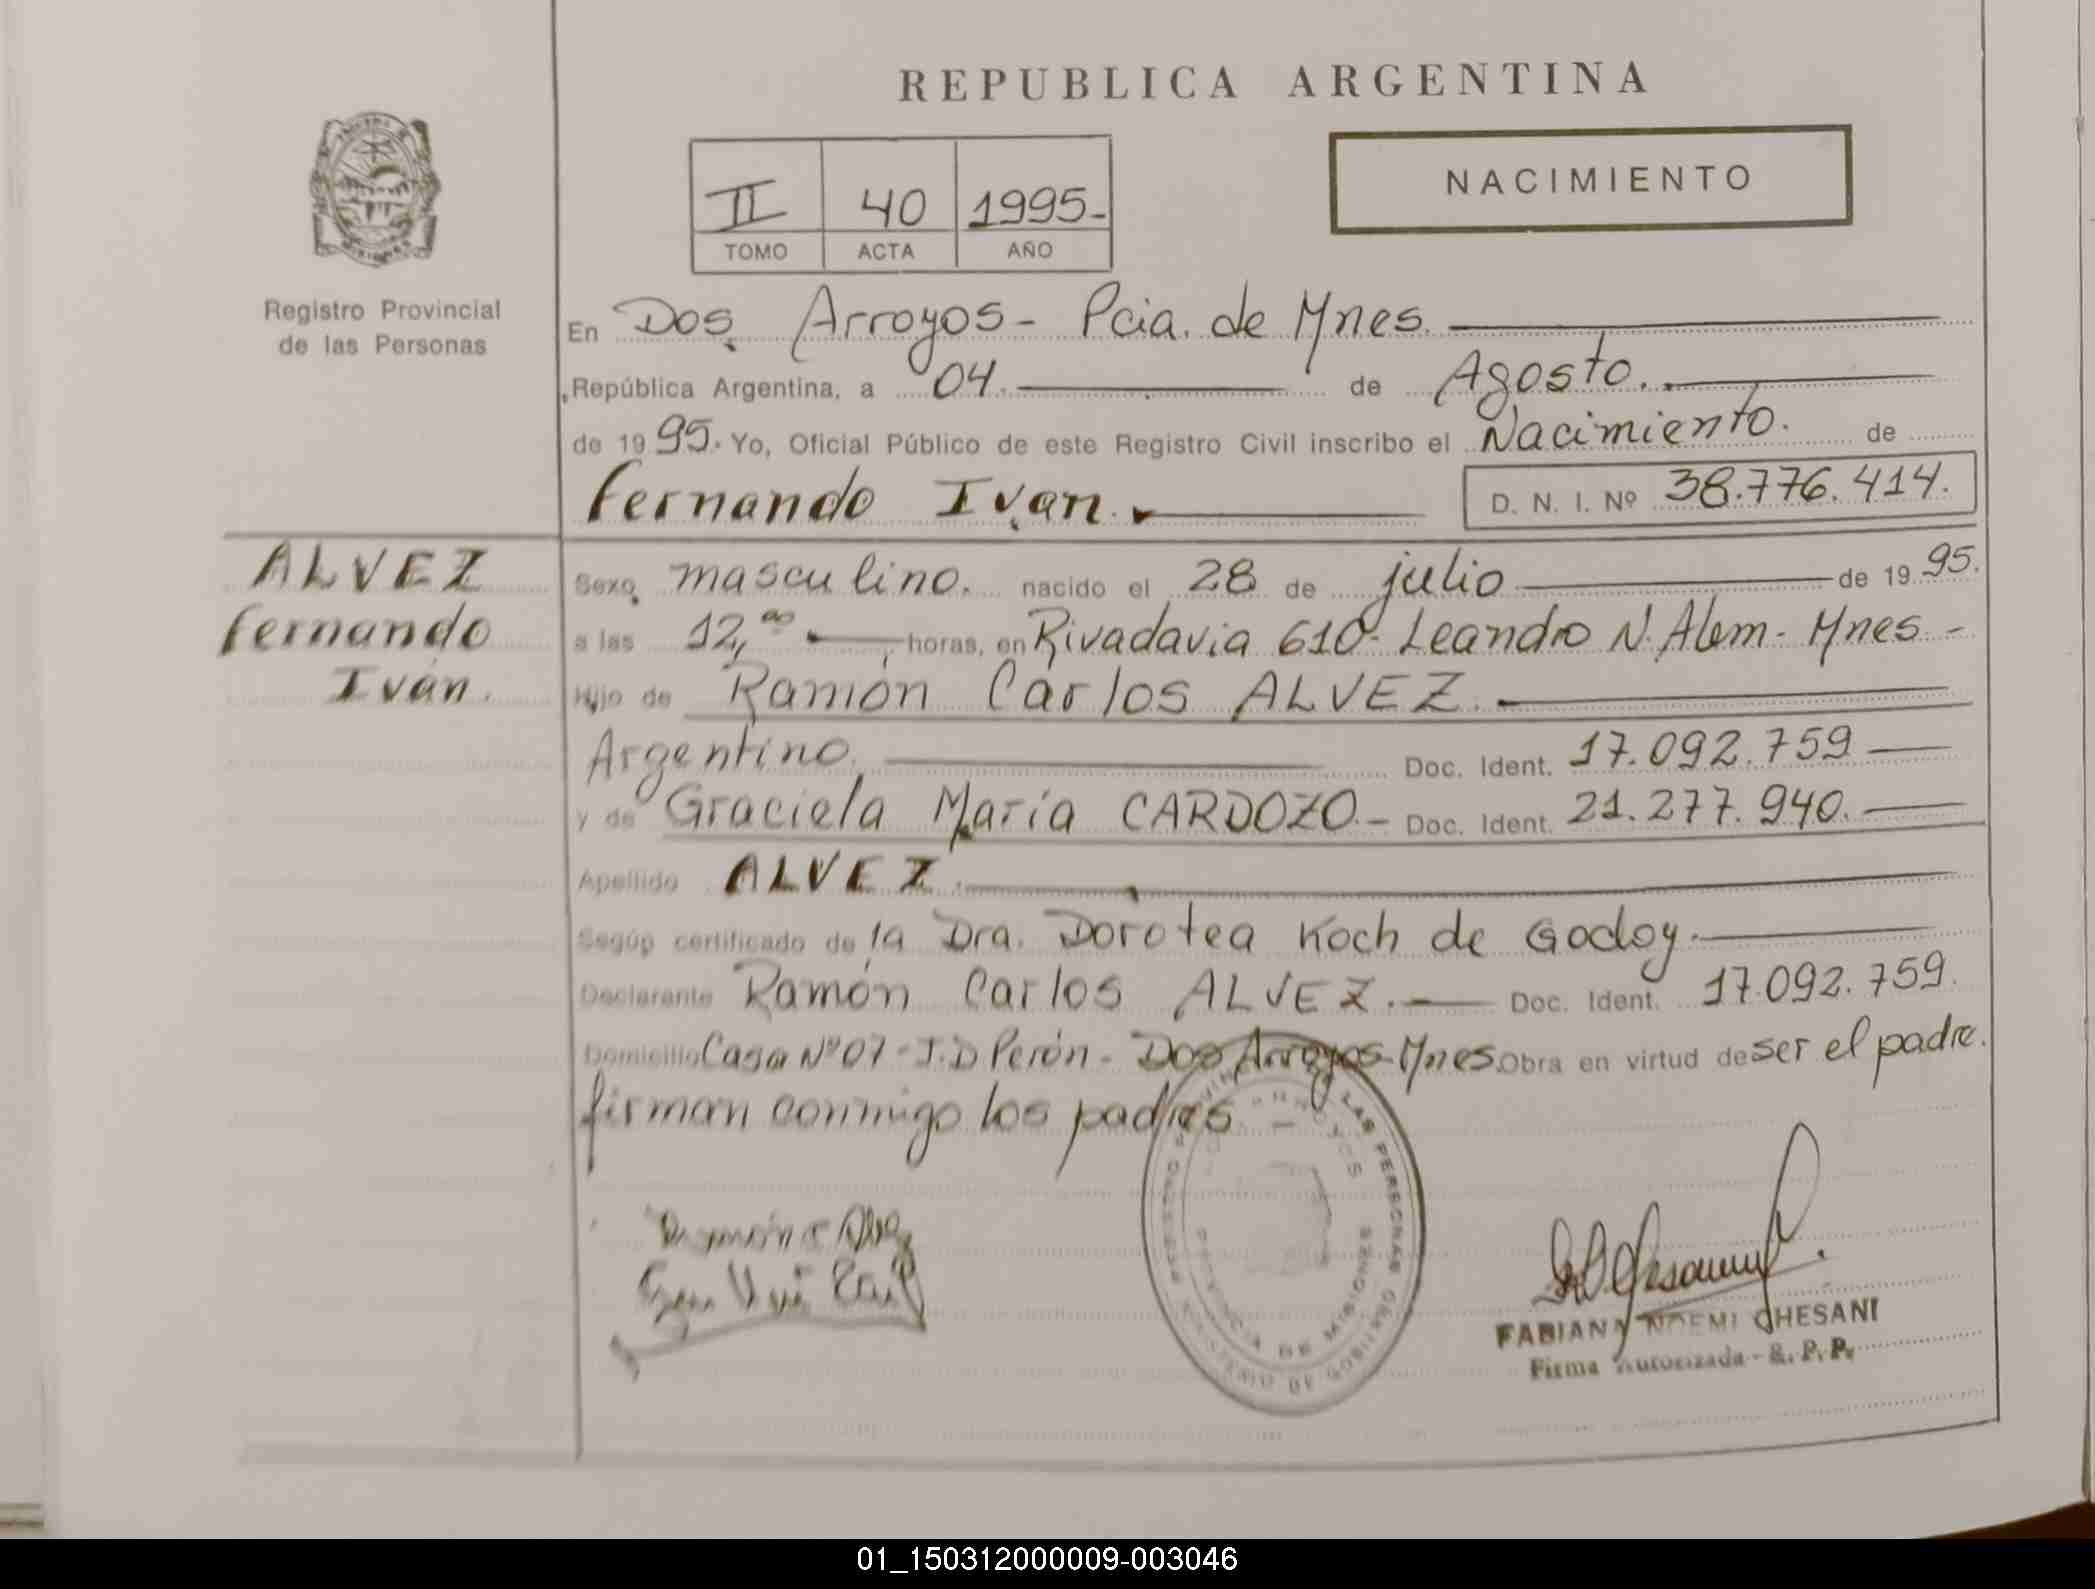 REPUBLICA ARGENTINA
NACIMIENTO
II 40 1995-
TOMO ACTA AÑO
Registro Provincial
de las Personas
En Dos Arroyos - Pcia. de Mnes.
República Argentina, a 04. de Agosto.
de 1995. Yo, Oficial Público de este Registro Civil inscribo el Nacimiento. de
Fernando Ivan. D. N. I. Nº 38.776.414.
ALVEZ
Fernando
Iván.
Sexo masculino. nacido el 28 de julio de 1995.
a las 12,00 horas, en Rivadavia 610- Leandro N. Alem- Mnes -
Hijo de Ramón Carlos ALVEZ.
Argentino. Doc. Ident. 17.092.759
y de Graciela María CARDOZO.- Doc. Ident. 21.277.940.
Apellido ALVEZ.
Según certificado de la Dra. Dorotea Koch de Godoy.
Declarante Ramón Carlos ALVEZ. Doc. Ident. 17.092.759.
Domicilio Casa Nº 07 - J.D Perón - Dos Arroyos - Mnes. Obra en virtud de ser el padre.
firman conmigo los padres
LAS PERSONAS
PROVINCIA DE MISIONES
MINISTERIO DE GOBIERNO
FABIANA NOEMI GHESANI
Firma Autorizada - R. P. P.
01_150312000009-003046